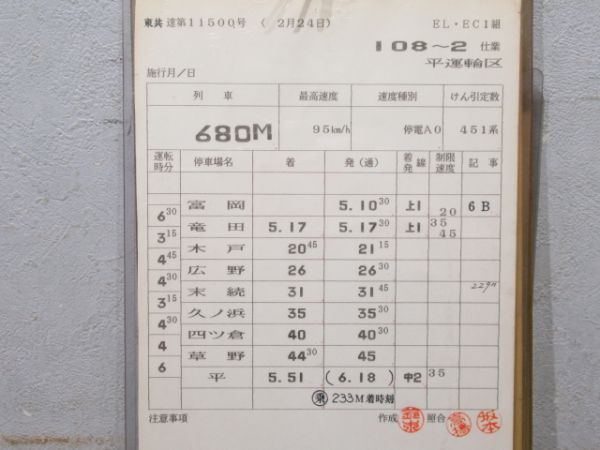 東共 達第11500号 ( 2月24日) EL・EC1組
108～2 仕業
平運輸区
施行月／日
列車 最高速度 速度種別 けん引定数
680M 95km/h 停電A0 451系
運転時分 停車場名 着 発(通) 着発線 制限速度 記事
富岡 5.10 30 上1 20 6B
6 30
竜田 5.17 5.17 30 上1 35 45
3 15
木戸 20 45 21 15
4 45
広野 26 26 30
4 30
末続 31 31 45 229M
3 15
久ノ浜 35 35 30
4 30
四ツ倉 40 40 30
4
草野 44 30 45
6
平 5.51 (6.18) 中2 35
乗 233M着時刻
注意事項 作成 照合